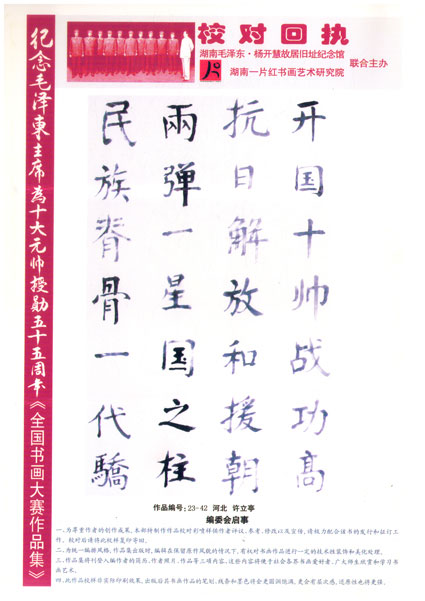 校对回执
湖南毛泽东·杨开慧故居旧址纪念馆
湖南一片红书画艺术研究院
联合主办
纪念毛泽東主席為十大元帅授勋五十五周年《全国书画大赛作品集》
开国十帅战功高
抗日解放和援朝
兩弹一星国之柱
民族脊骨一代驕
作品编号:23-42 河北 许立亭
编委会启事
一、为尊重作者的创作成果,本部特制作作品校对彩喷样供作者评议、参考、修改以及宣传,请极力配合该书的发行和征订工
作。校对后请将此校样复印寄回。
二、为统一编排风格,作品集出版时,编辑在保留原作风貌的情况下,有权对书画作品进行一定的技术性装饰和美化处理。
三、作品集将刊登入编作者的简历、作者照片、作品等三项内容,这些内容将便于社会各界书画爱好者、广大师生欣赏和学习书
画艺术。
四、此作品校样非实际印刷效果,出版后原书画作品的笔划、线条和墨色将会更圆润饱满,更会有层次感,还原性也将更强。